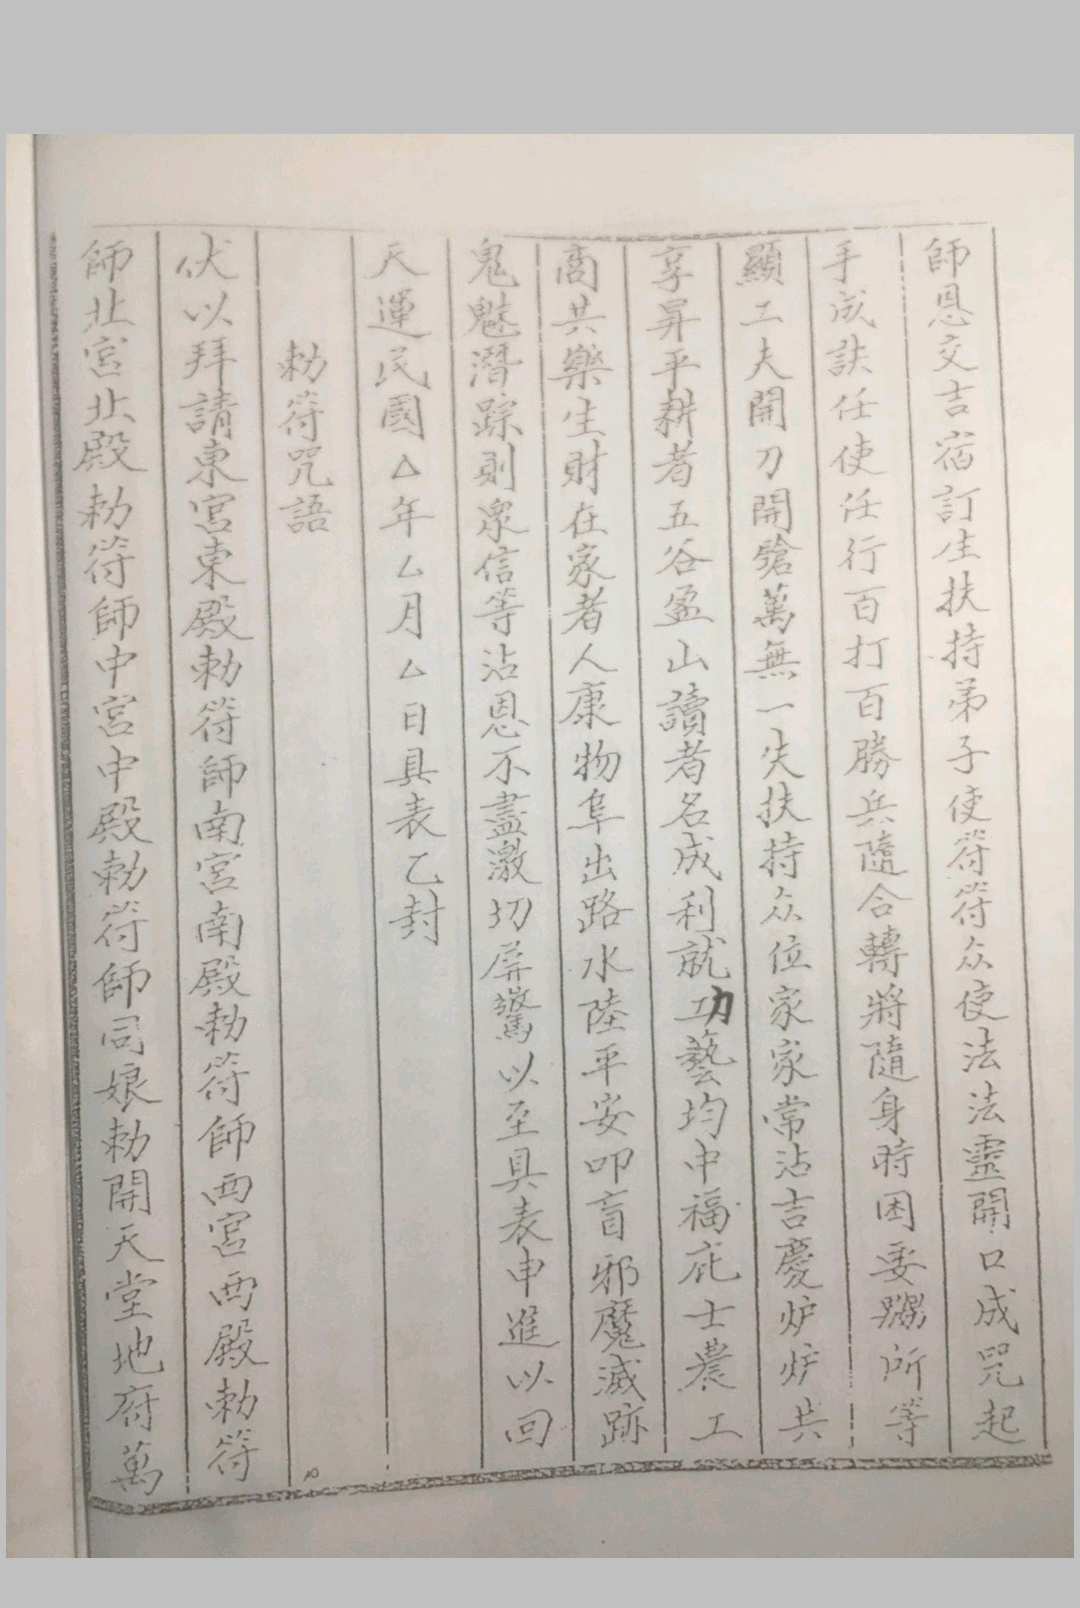 師恩交吉宿訂生扶持弟子使符符灵使法法靈開口成咒起
手成訣任使任行百打百勝兵隨合轉將隨身時困委 所等
顯工夫開刀開鎗萬無一失扶持众位家家常沾吉慶炉炉共
享昇平耕者五谷盈山讀者名成利就功藝均中福庇士農工
商共樂生財在家者人康物阜出路水陸平安叩盲邪魔滅跡
鬼魅潛踪則衆信等沾恩不盡激切屏驚以至具表申進以回
天運民國△年△月△日具表乙封
勅符咒語
伏以拜請東宮東殿勅符師南宮南殿勅符師西宮西殿勅符
師北宮北殿勅符師中宮中殿勅符師司娘勅開天堂地府萬